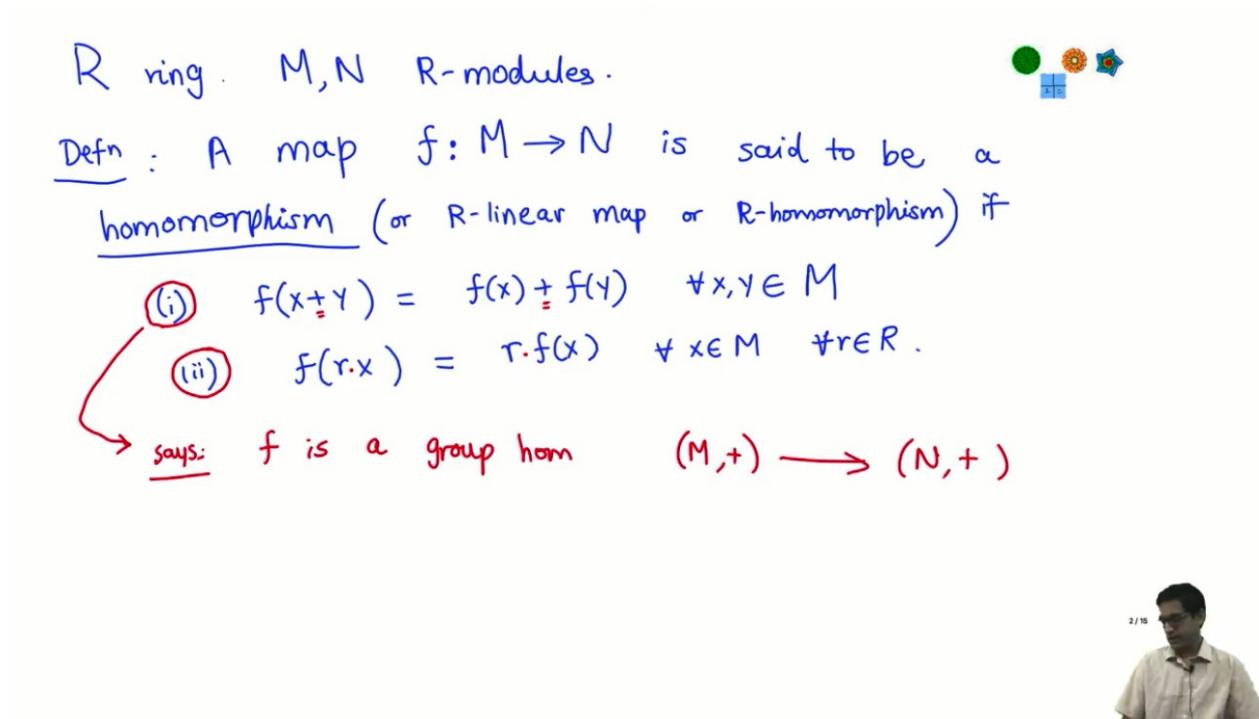 R ring. M, N R-modules.
Defn: A map f: M → N is said to be a
homomorphism (or R-linear map or R-homomorphism) if
(i) f(x+y) = f(x) + f(y) ∀ x, y ∈ M
(ii) f(r.x) = r.f(x) ∀ x ∈ M ∀ r ∈ R.
says: f is a group hom (M,+) ⟶ (N,+)
2 / 15